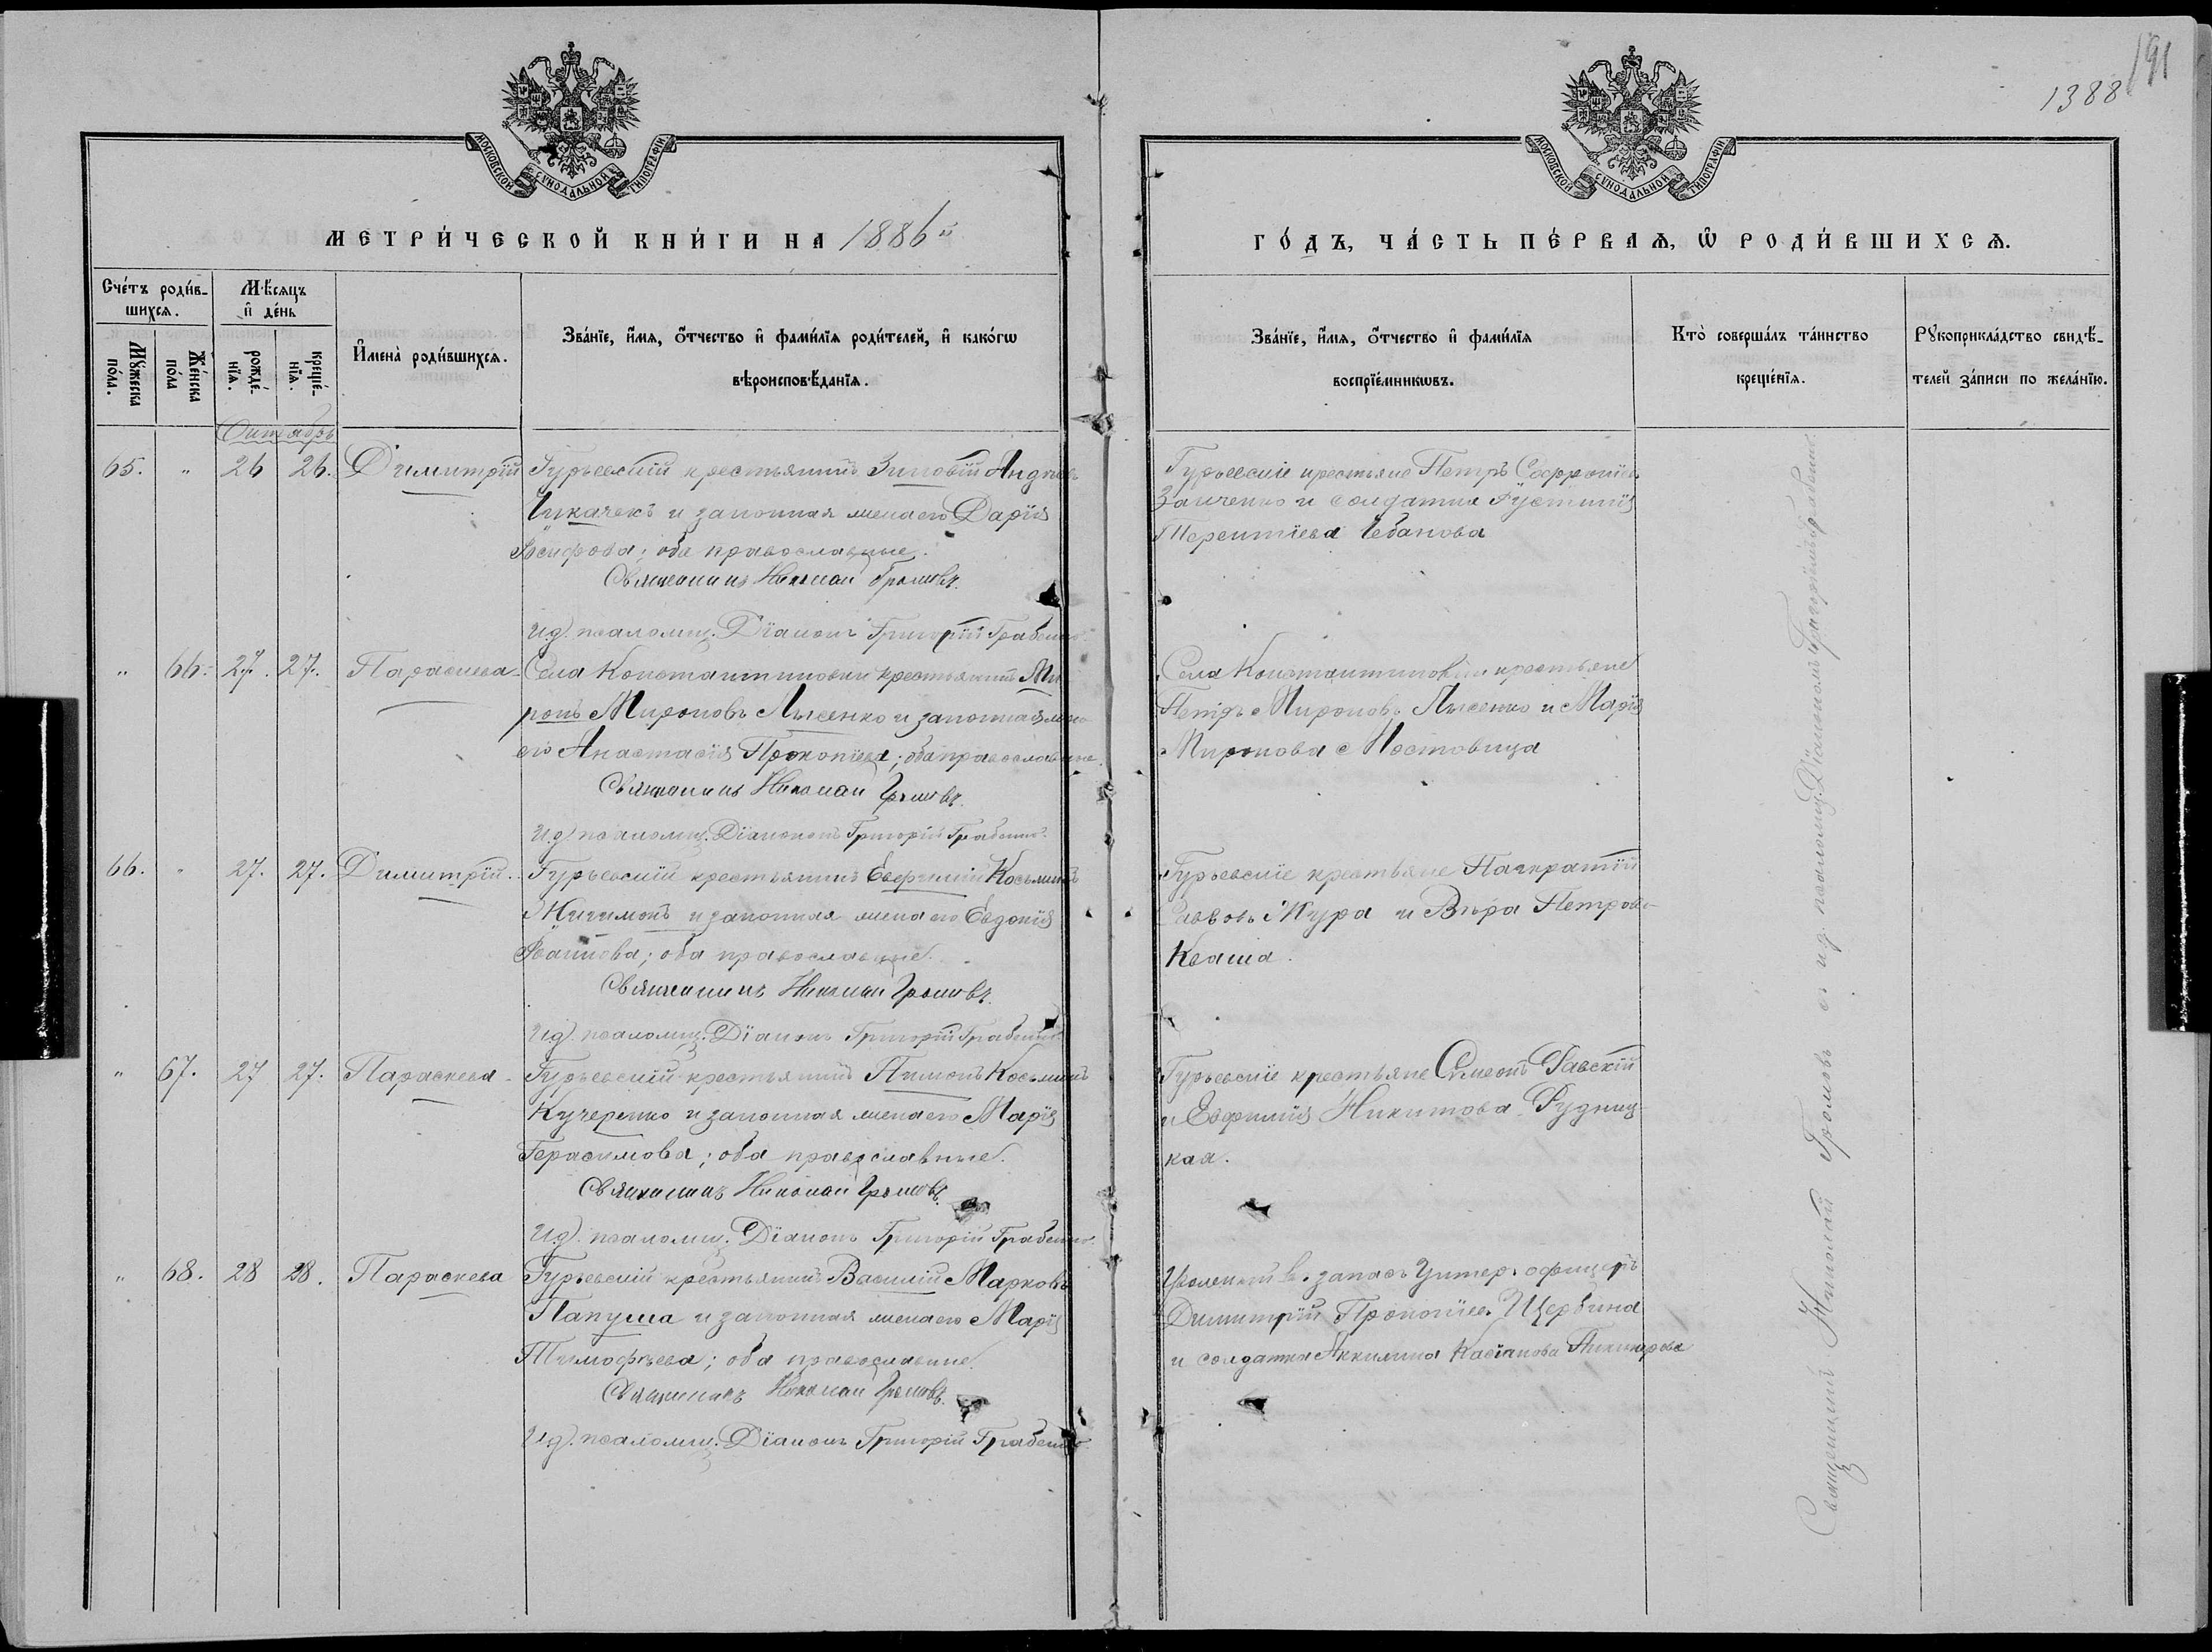 1388
191
МОСКОВСКОЙ СѴНОДАЛЬНОЙ ТИПОГРАФІИ
МОСКОВСКОЙ СѴНОДАЛЬНОЙ ТИПОГРАФІИ
МЕТРИ́ЧЕСКОЙ КНИ́ГИ НА 1886й
ГО́ДЪ, ЧА́СТЬ ПЕ́РВАѦ, Ѡ РОДИ́ВШИХСѦ.
Сче́тъ роди́в-
шихсѧ.
Мꙋ́жеска
по́ла.
Же́нска
пола
Мѣ́сѧцъ
и҆ де́нь
рожде́-
нїѧ.
креще́-
нїѧ.
И҆мена̀ роди́вшихсѧ.
Зва́нїе, и҆́мѧ, ѻ҆́тчество и҆ фами́лїѧ роди́телей, и҆ како́гѡ
вѣроисповѣ́данїѧ.
Зва́нїе, и҆́мѧ, ѻ҆́тчество и҆ фами́лїѧ
воспрїе́мникѡвъ.
Кто̀ соверша́лъ та́инство
креще́нїѧ.
Рꙋкоприкла́дство свидѣ́-
телей за́писи по жела́нїю.
Октябрь
65. " 26 26. Димитрій Гурьевскій крестьянинъ Зиновій Андреевъ
Чикачекъ и законная жена его Дарія
Іосифова; оба православные.
Священникъ Николай Громовъ.
И.д. псаломщ. Діаконъ Григорій Грабенко
Гурьевскіе крестьяне Петръ Софроніевъ
Заиченко и солдатка Іустинія
Терентіева Чебанова
" 66. 27. 27. Параскева Села Константиновки крестьянинъ Ми
ронъ Мироновъ Лысенко и законная жена
его Анастасія Прокопіева; оба православные.
Священникъ Николай Громовъ.
И.д. псаломщ. Діаконъ Григорій Грабенко.
Села Константиновки крестьяне
Петръ Мироновъ Лысенко и Марія
Миронова Мостовица
66. " 27. 27. Димитрій. Гурьевскій крестьянинъ Евфимій Косьминъ
Жигимонъ и законная жена его Евдокія
Іванова; оба православные.
Священникъ Николай Громовъ.
И.д. псаломщ. Діаконъ Григорій Грабенко
Гурьевскіе крестьяне Панкратій
Жура и Вѣра Петрова
Кваша.
" 67. 27 27. Параскева Гурьевскій крестьянинъ Пимонъ Косьминъ
Кучеренко и законная жена его Марія
Герасимова; оба православные.
Священникъ Николай Громовъ.
И.д. псаломщ. Діаконъ Григорій Грабенко.
Гурьевскіе крестьяне Симеонъ Равскій
и Евфимія Никитова Рудниц-
кая.
" 68. 28 28. Параскева Гурьевскій крестьянинъ Василій Марковъ
Папуша и законная жена его Марія
Тимофѣева; оба православные.
Священникъ Николай Громовъ.
И.д. псаломщ. Діаконъ Григорій Грабенко
Уволенный въ запасъ Унтеръ-офицеръ
Димитрій Прокопіевъ Щербина
и солдатка Аккилина Касіанова
Священникъ Николай Громовъ съ и.д. псаломщ. Діакономъ Григоріемъ Грабенко.